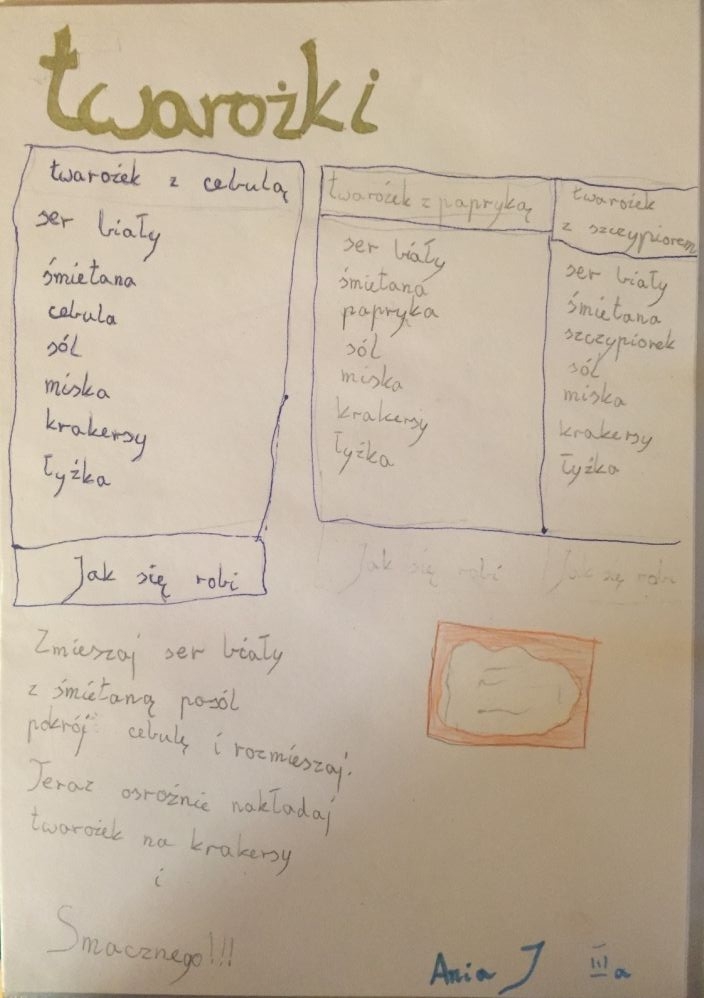 twarożki
twarożek z cebulą
ser biały
śmietana
cebula
sól
miska
krakersy
łyżka
Jak się robi
twarożek z papryką
ser biały
śmietana
papryka
sól
miska
krakersy
łyżka
Jak się robi
twarożek
z szczypiorem
ser biały
śmietana
szczypiorek
sól
miska
krakersy
łyżka
Jak się robi
Zmieszaj ser biały
z śmietaną posól
pokrój cebulę i rozmieszaj.
Teraz osrożnie nakładaj
twarożek na krakersy
i
Smacznego!!!
Ania J IIIa